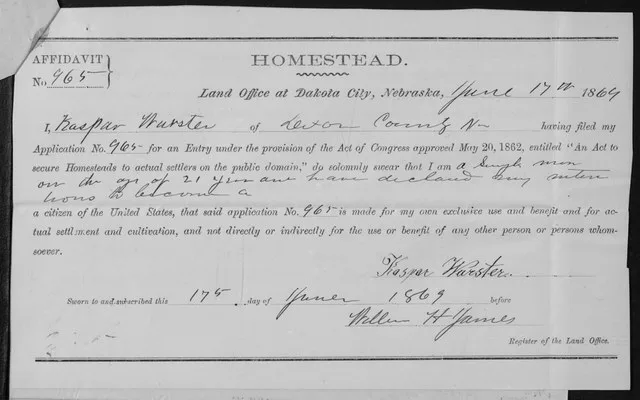 AFFIDAVIT
No 965
HOMESTEAD.
Land Office at Dakota City, Nebraska, June 17th 1869
I, Kaspar Warster of Dixon County N having filed my
Application No. 965 for an Entry under the provision of the Act of Congress approved May 20, 1862, entitled "An Act to
secure Homesteads to actual settlers on the public domain," do solemnly swear that I am a Single man
over the age of 21 Years and have declared my inten
tions to become a
a citizen of the United States, that said application No. 965 is made for my own exclusive use and benefit and for ac-
tual settlment and cultivation, and not directly or indirectly for the use or benefit of any other person or persons whom-
soever.
Kaspar Warster
Sworn to and subscribed this 17th day of June 1869 before
William H James
Register of the Land Office.